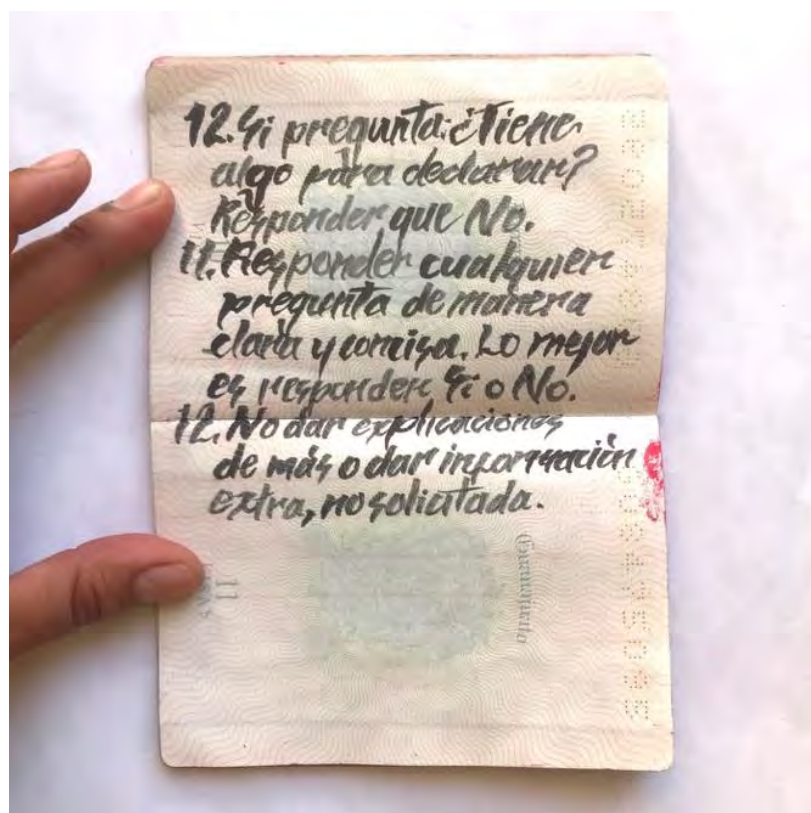 12. Si pregunta: ¿Tiene
algo para declarar?
Responder que No.
11. Responder cualquier
pregunta de manera
clara y concisa. Lo mejor
es responder Si o No.
12. No dar explicaciones
de más o dar información
extra, no solicitada.
11
Guanajuato